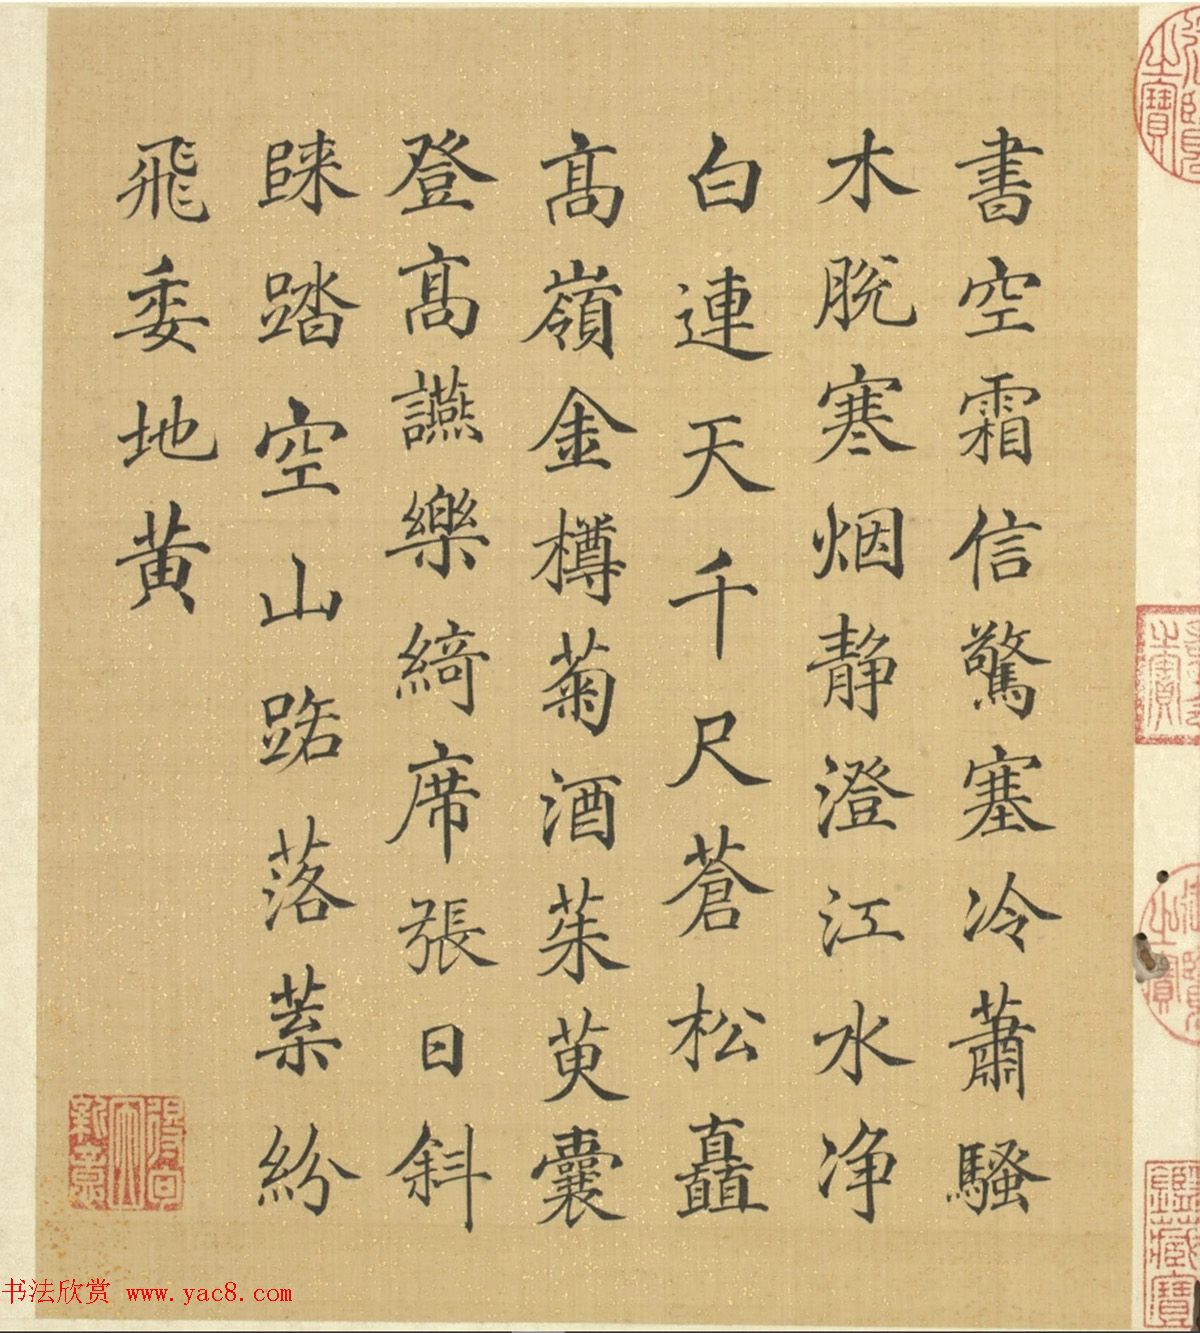 書空霜信驚塞冷蕭騷
木脫寒烟静澄江水净
白連天千尺蒼松矗
高嶺金樽菊酒茱萸囊
登高讌樂綺席張日斜
歸踏空山路落葉紛
飛委地黄
书法欣赏 www.yac8.com